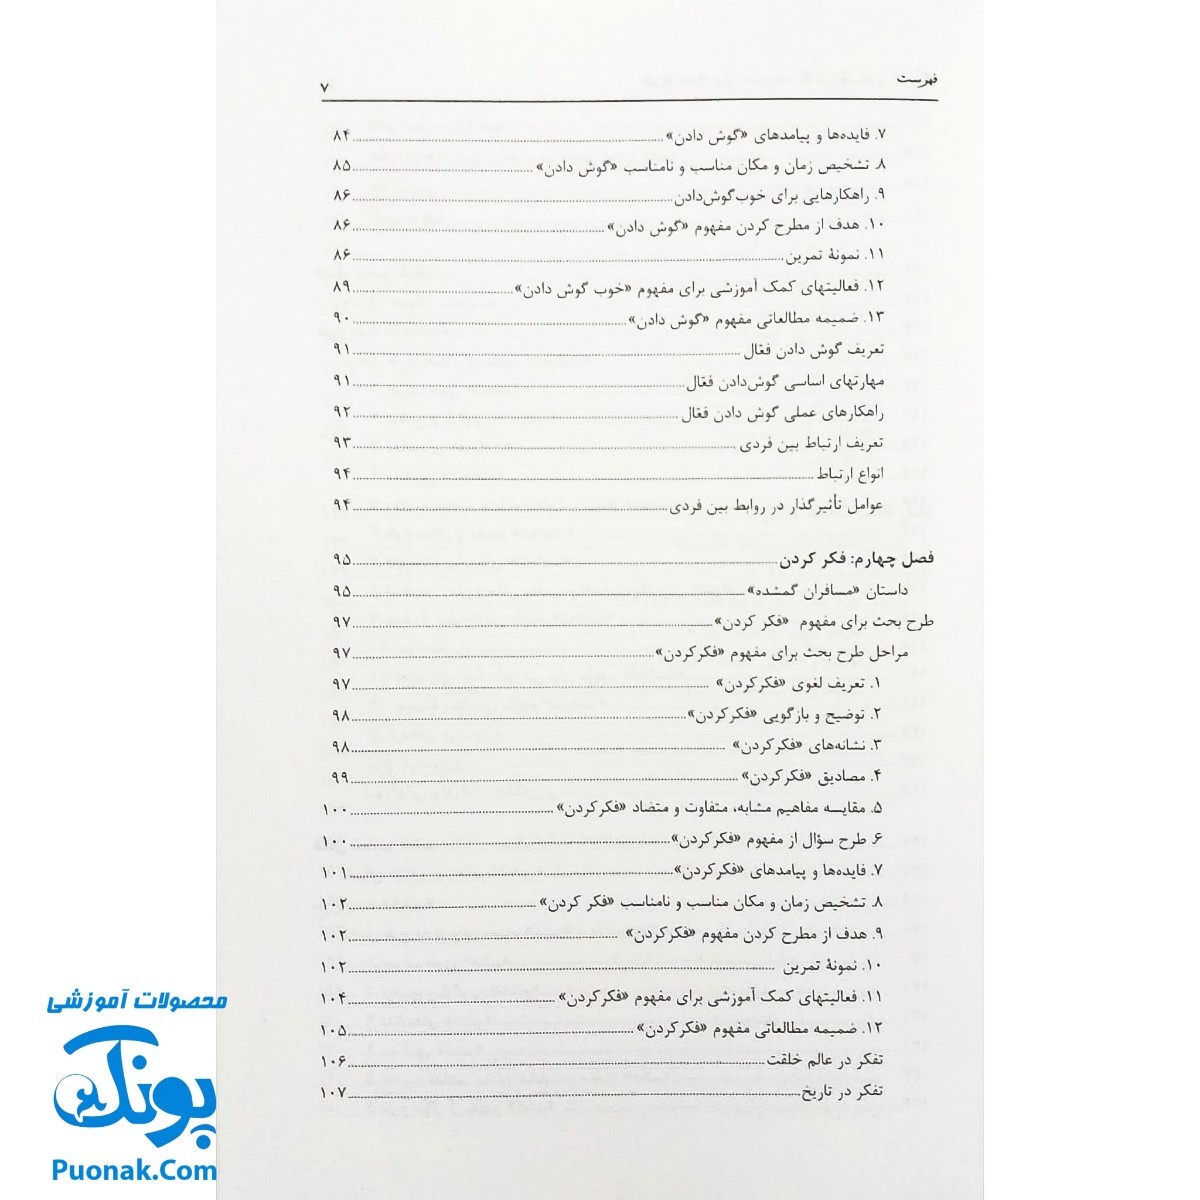 فهرست ۷
۷. فایده‌ها و پیامدهای «گوش دادن» ۸۴
۸. تشخیص زمان و مکان مناسب و نامناسب «گوش دادن» ۸۵
۹. راهکارهایی برای خوب‌گوش‌دادن ۸۶
۱۰. هدف از مطرح کردن مفهوم «گوش دادن» ۸۶
۱۱. نمونهٔ تمرین ۸۶
۱۲. فعالیتهای کمک آموزشی برای مفهوم «خوب گوش دادن» ۸۹
۱۳. ضمیمه مطالعاتی مفهوم «گوش دادن» ۹۰
تعریف گوش دادن فعّال ۹۱
مهارتهای اساسی گوش‌دادن فعّال ۹۱
راهکارهای عملی گوش دادن فعّال ۹۲
تعریف ارتباط بین فردی ۹۳
انواع ارتباط ۹۴
عوامل تأثیرگذار در روابط بین فردی ۹۴
فصل چهارم: فکر کردن ۹۵
داستان «مسافران گمشده» ۹۵
طرح بحث برای مفهوم «فکر کردن» ۹۷
مراحل طرح بحث برای مفهوم «فکرکردن» ۹۷
۱. تعریف لغوی «فکرکردن» ۹۷
۲. توضیح و بازگویی «فکرکردن» ۹۸
۳. نشانه‌های «فکرکردن» ۹۸
۴. مصادیق «فکرکردن» ۹۹
۵. مقایسه مفاهیم مشابه، متفاوت و متضاد «فکرکردن» ۱۰۰
۶. طرح سؤال از مفهوم «فکرکردن» ۱۰۰
۷. فایده‌ها و پیامدهای «فکرکردن» ۱۰۱
۸. تشخیص زمان و مکان مناسب و نامناسب «فکر کردن» ۱۰۲
۹. هدف از مطرح کردن مفهوم «فکرکردن» ۱۰۲
۱۰. نمونهٔ تمرین ۱۰۲
۱۱. فعالیتهای کمک آموزشی برای مفهوم «فکرکردن» ۱۰۴
۱۲. ضمیمه مطالعاتی مفهوم «فکرکردن» ۱۰۵
تفکر در عالم خلقت ۱۰۶
تفکر در تاریخ ۱۰۷
محصولات آموزشی
پونک
Puonak.Com